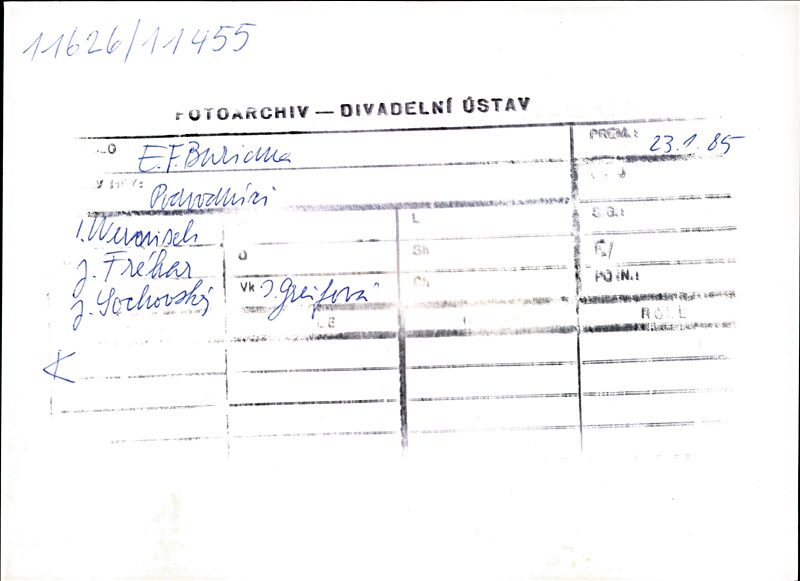 11626/11455
FOTOARCHIV — DIVADELNÍ ÚSTAV
LO E. F. Buriana
PREM.: 23.1.85
Podvodníci
I. Wernisch
J. Fréhar
J. Sochovský
L
O
Sh
Vk J. Greifová
Ch
S G.:
F/
POZN.:
LE
ROLL
K